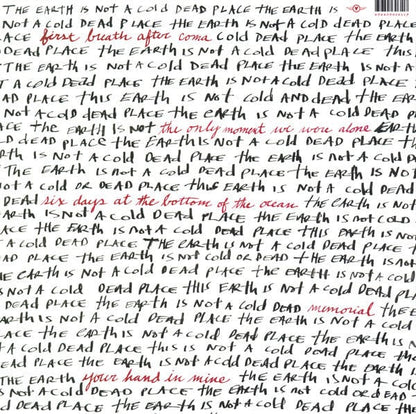 THE EARTH IS NOT A COLD DEAD PLACE THE EARTH IS
NOT A COLD DEAD PLACE THE EARTH IS NOT A COLD DEAD PLACE
ACE first breath after coma COLD DEAD PLACE THE EARTH
DEAD PLACE THE EARTH IS NOT A COLD DEAD PLACE THIS
THE EARTH IS NOT A COLD DEAD PLACE THE EARTH IS NOT
T A COLD DEAD PLACE THE EARTH IS NOT A COLD DEAD PLACE
AD PLACE THIS EARTH IS NOT COLD AND DEAD THE EAR
NOT A COLD DEAD PLACE THE EARTH IS NOT A COLD DEAD P
ACE THE EARTH IS NOT the only moment we were alone EARTH
D DEAD PLACE THE EARTH IS NOT A COLD DEAD PLACE TH
RTH IS NOT A COLD DEAD PLACE THE EARTH IS NOT A COLD P
THE EARTH IS NOT A COLD DEAD PLACE THE EARTH IS N
NOT A COLD OR DEAD PLACE THIS EARTH IS NOT A COLD
DEAD six days at the bottom of the ocean THE EARTH IS NOT
IS NOT A COLD DEAD PLACE THE EARTH IS NOT COLD
ACE THE EARTH IS NOT A COLD DEAD PLACE THIS EARTH IS NO
T A COLD DEAD PLACE THE EARTH IS NOT A COLD DEAD PLACE
AD PLACE THE EARTH IS NOT COLD OR DEAD THE EARTH IS N
HE EARTH IS NOT A COLD DEAD PLACE THE EARTH IS NOT A COLD
IS NOT A COLD DEAD PLACE THIS EARTH IS NOT A COLD DEAD
DEAD PLACE THE EARTH IS NOT A COLD DEAD memorial THE E
EARTH IS NOT A COLD DEAD PLACE THE EARTH IS NOT A COLD
LACE THE EARTH IS NOT A COLD DEAD PLACE THE EARTH IS N
T A COLD DEAD PLACE THIS IS NOT A COLD DEAD PLACE TH
EAD PLACE THE EARTH IS NOT A COLD DEAD PLACE THE EARTH
THE EARTH your hand in mine THE EARTH IS NOT A CO
IS NOT A COLD DEAD PLACE THE EARTH IS NOT COLD OR DEAD
DEAD PLACE THE EARTH IS NOT A COLD DEAD PLACE THE